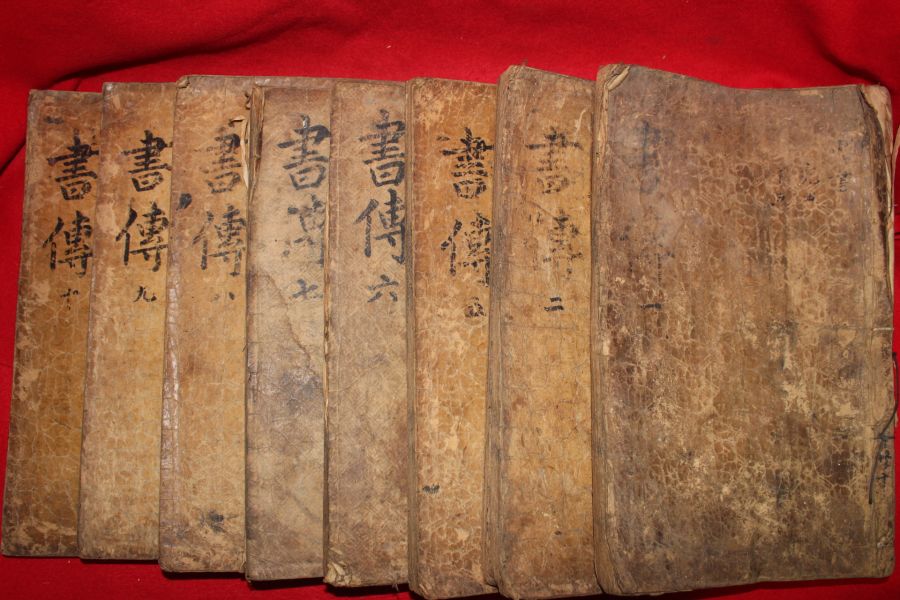 書 一
書傳二
書傳五
書傳六
書傳七
書傳八
書傳九
書傳十